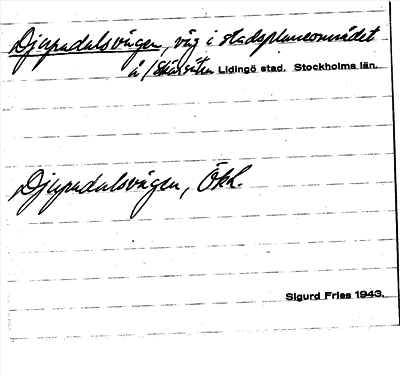 Djupadalsvägen, väg i stadsplaneområdet
å Skärsätra Lidingö stad. Stockholms län.
Djupadalsvägen, Ökk.
Sigurd Fries 1943.